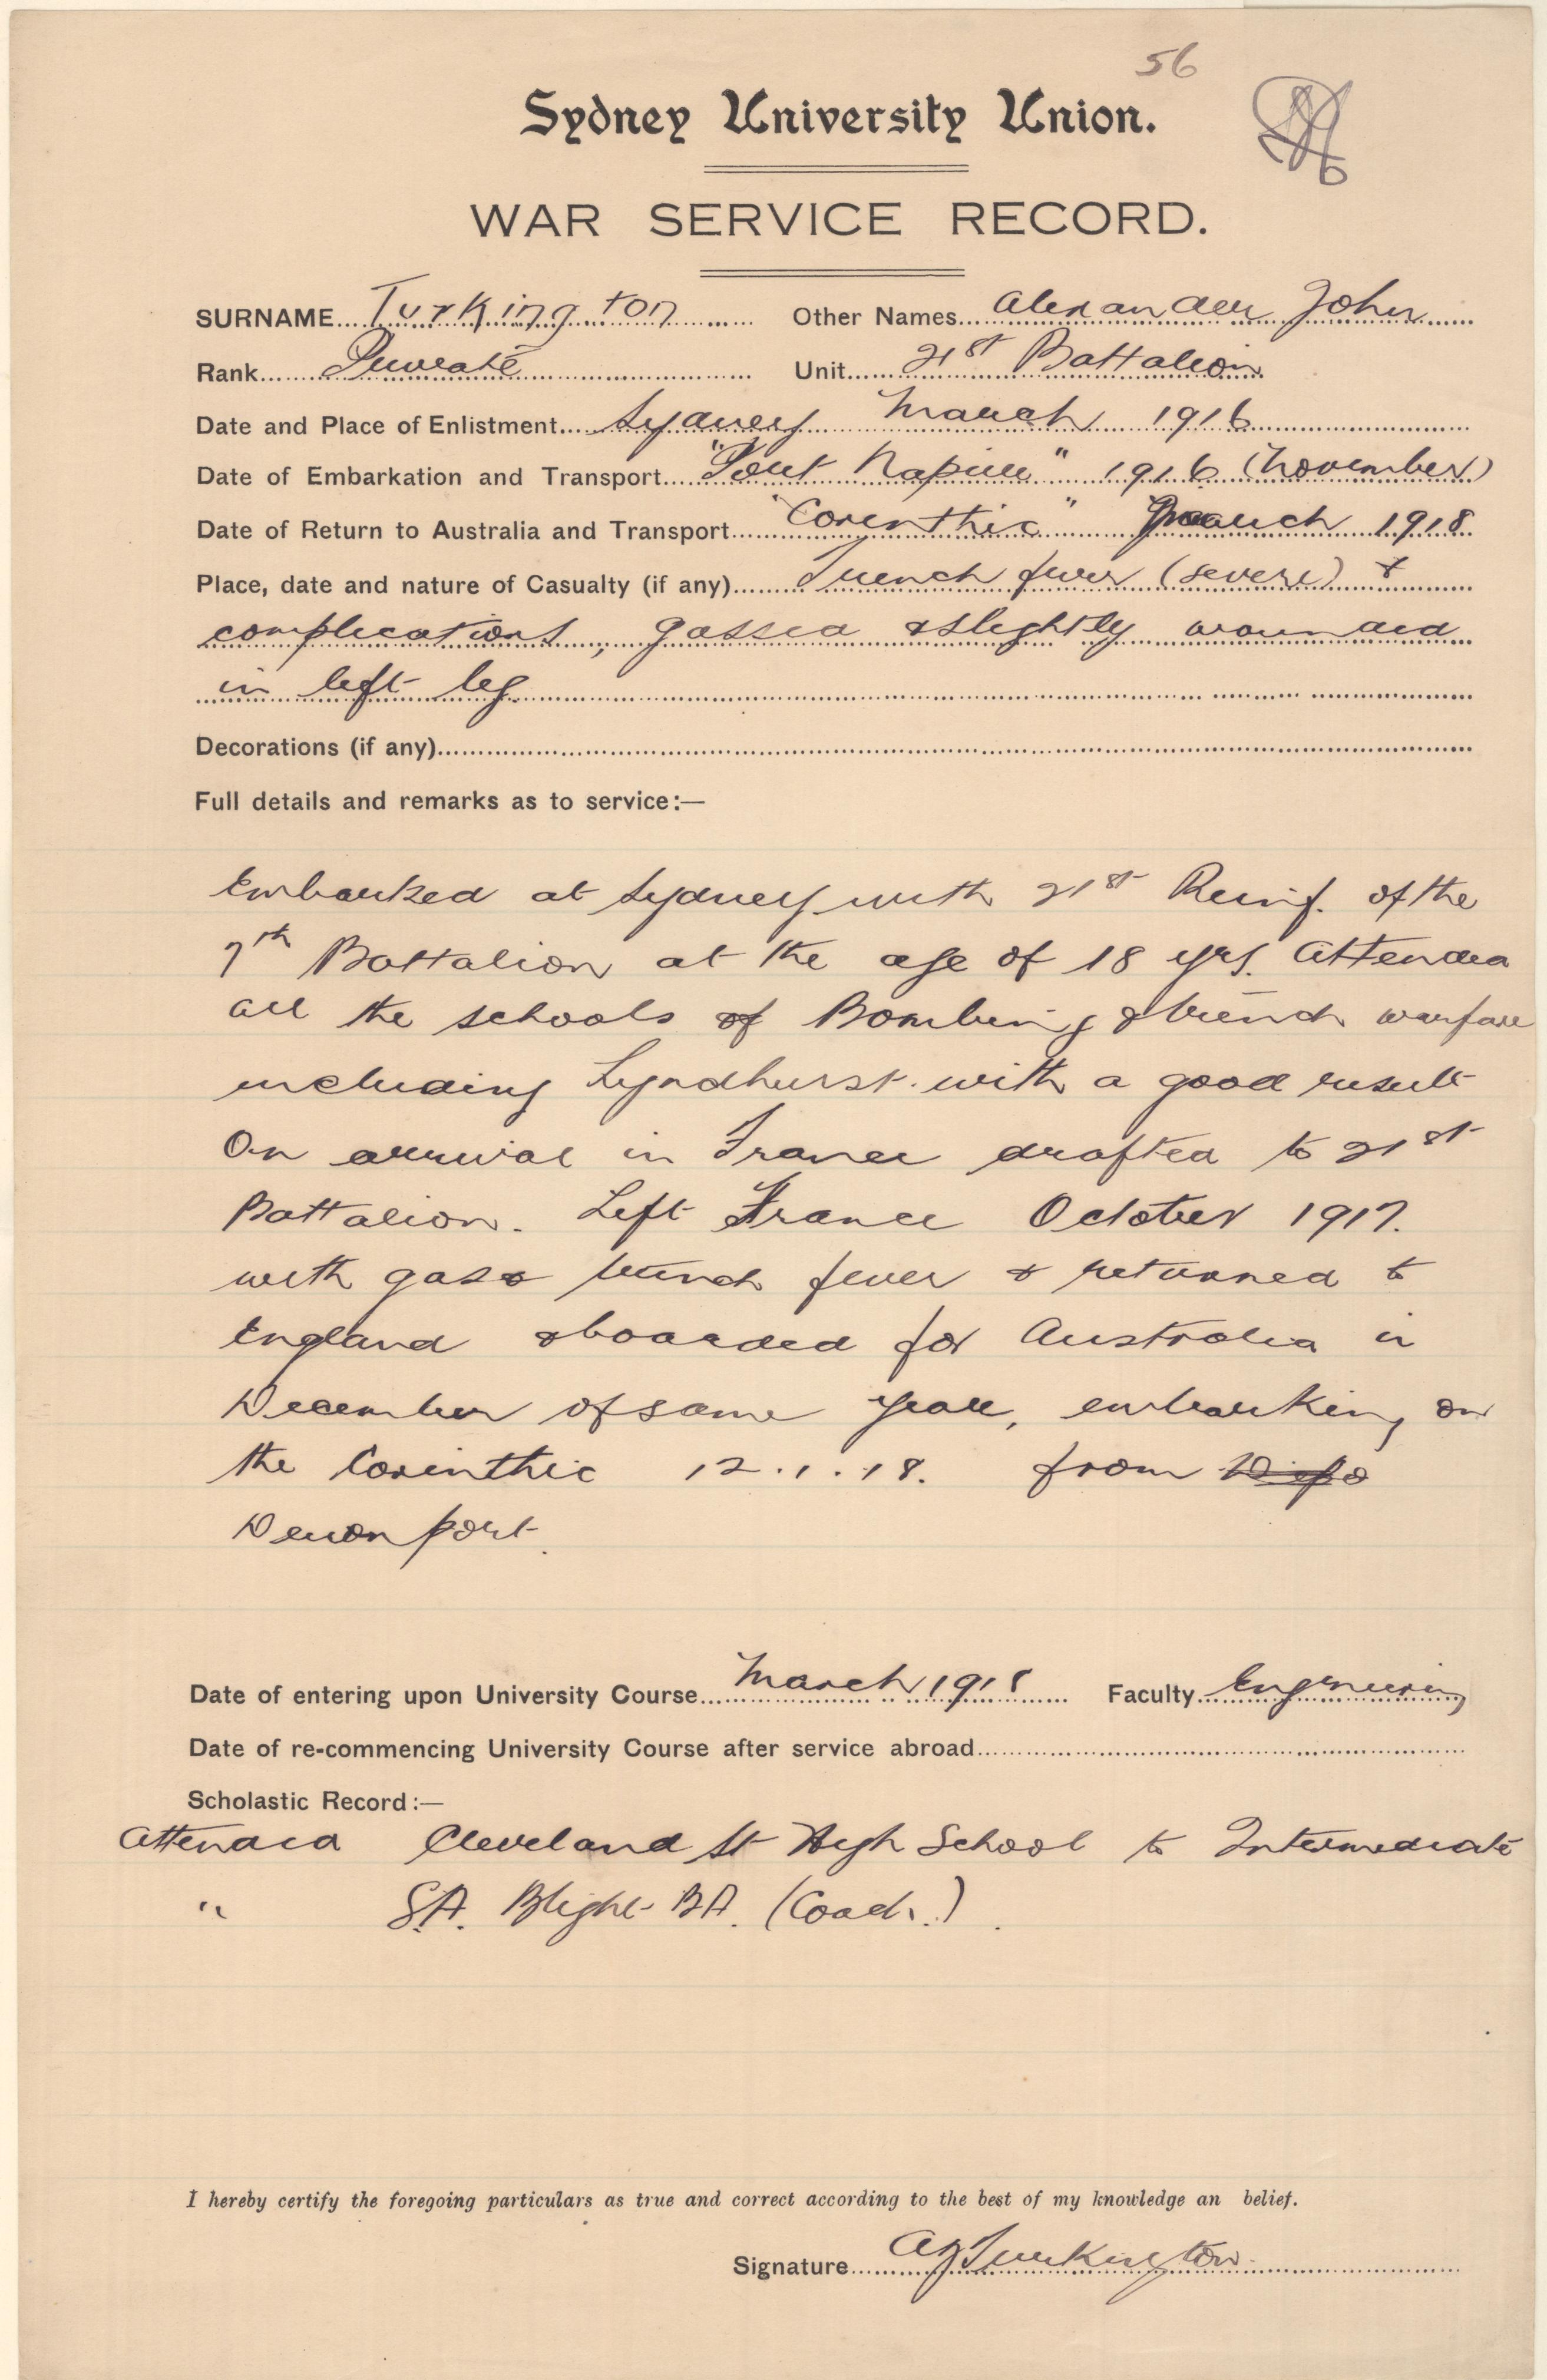 56
Sydney University Union.
WAR SERVICE RECORD.
SURNAME Turkington Other Names Alexander John
Rank Private Unit 21st Battalion
Date and Place of Enlistment Sydney March 1916
Date of Embarkation and Transport "Port Napier" 1916 (November)
Date of Return to Australia and Transport "Corinthic" March 1918
Place, date and nature of Casualty (if any) Trench fever (severe) &
complications, gassed & slightly wounded
in left leg.
Decorations (if any)
Full details and remarks as to service:—
Embarked at Sydney with 21st Reinf. of the
7th Battalion at the age of 18 yrs. Attended
all the schools of Bombing & trench warfare
including Lyndhurst. with a good result
On arrival in France drafted to 21st
Battalion. Left France October 1917.
with gas & trench fever & returned to
England & boarded for Australia in
December of same year, embarking on
the Corinthic 12.1.18. from
Devonport.
Date of entering upon University Course March 1918 Faculty Engineering
Date of re-commencing University Course after service abroad
Scholastic Record:—
Attended Cleveland St High School to Intermediate
" S.A. Blight B.A. (Coach.)
I hereby certify the foregoing particulars as true and correct according to the best of my knowledge an belief.
Signature AJTurkington